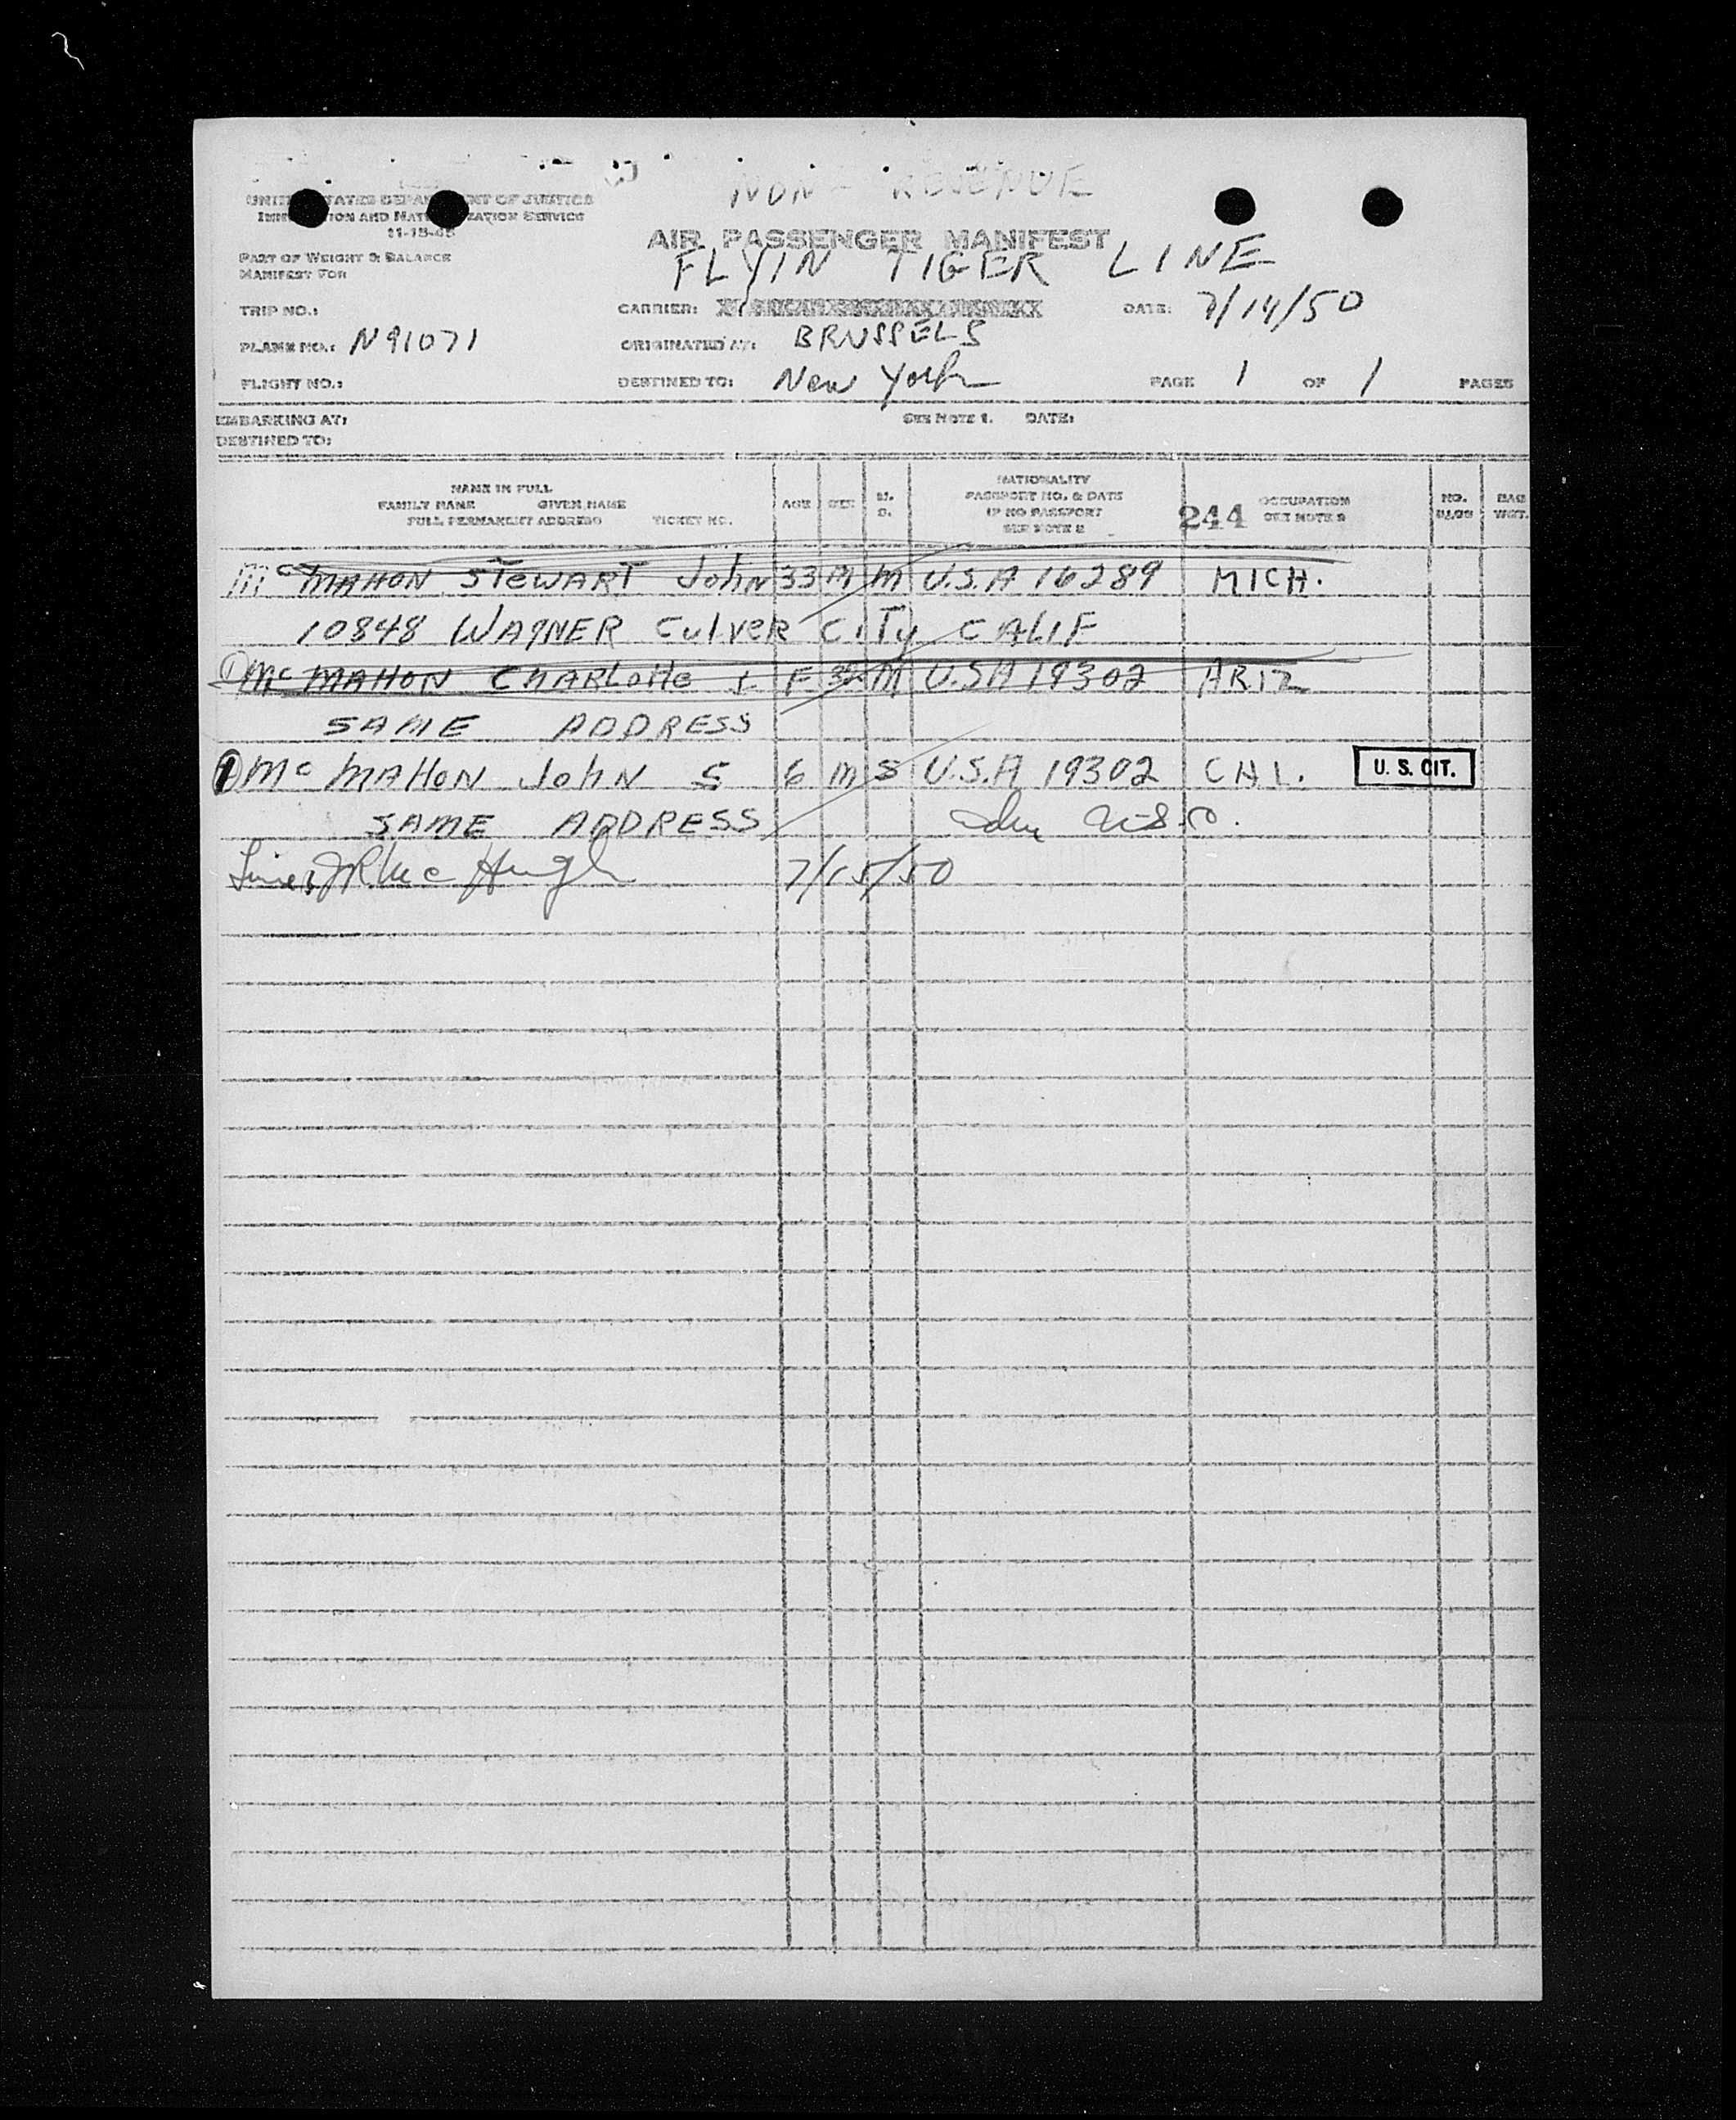 NON REVENUE
UNITED STATES DEPARTMENT OF JUSTICE
IMMIGRATION AND NATURALIZATION SERVICE
11-15-45
AIR PASSENGER MANIFEST
PART OF WEIGHT & BALANCE
MANIFEST FOR
FLYIN TIGER LINE
TRIP NO.: CARRIER: DATE: 7/14/50
PLANE NO.: N91071 ORIGINATED AT: BRUSSELS
FLIGHT NO.: DESTINED TO: New York PAGE 1 OF 1 PAGES
EMBARKING AT: SEE NOTE 1. DATE:
DESTINED TO:
NAME IN FULL
FAMILY NAME GIVEN NAME
FULL PERMANENT ADDRESS TICKET NO.
AGE SEX M. S.
NATIONALITY
PASSPORT NO. & DATE
IF NO PASSPORT
SEE NOTE 2
244 OCCUPATION
SEE NOTE 2
NO. BAG
WGT.
Mc MAHON STEWART JOHN 33 M M U.S.A 16289 MICH.
10848 WAGNER CULVER CITY CALIF
1 Mc MAHON CHARLOTTE F 32 M U.S.A 19302 ARIZ
SAME ADDRESS
1 Mc MAHON JOHN S 6 M S U.S.A 19302 CAL. U. S. CIT.
SAME ADDRESS
JR Mc Hugh 7/15/50